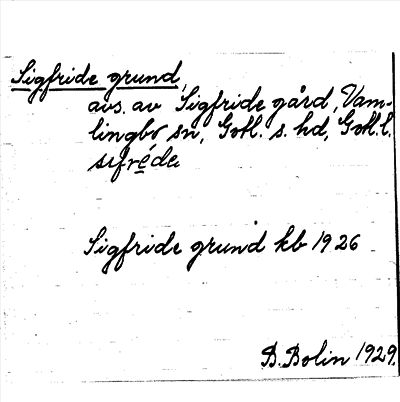 Sigfride grund,
avs. av Sigfride gård, Vam-
lingbo sn, Gotl. s. hd, Gotl. l.
sıfrḗde
Sigfride grund kb 1926
B. Bolin 1929.